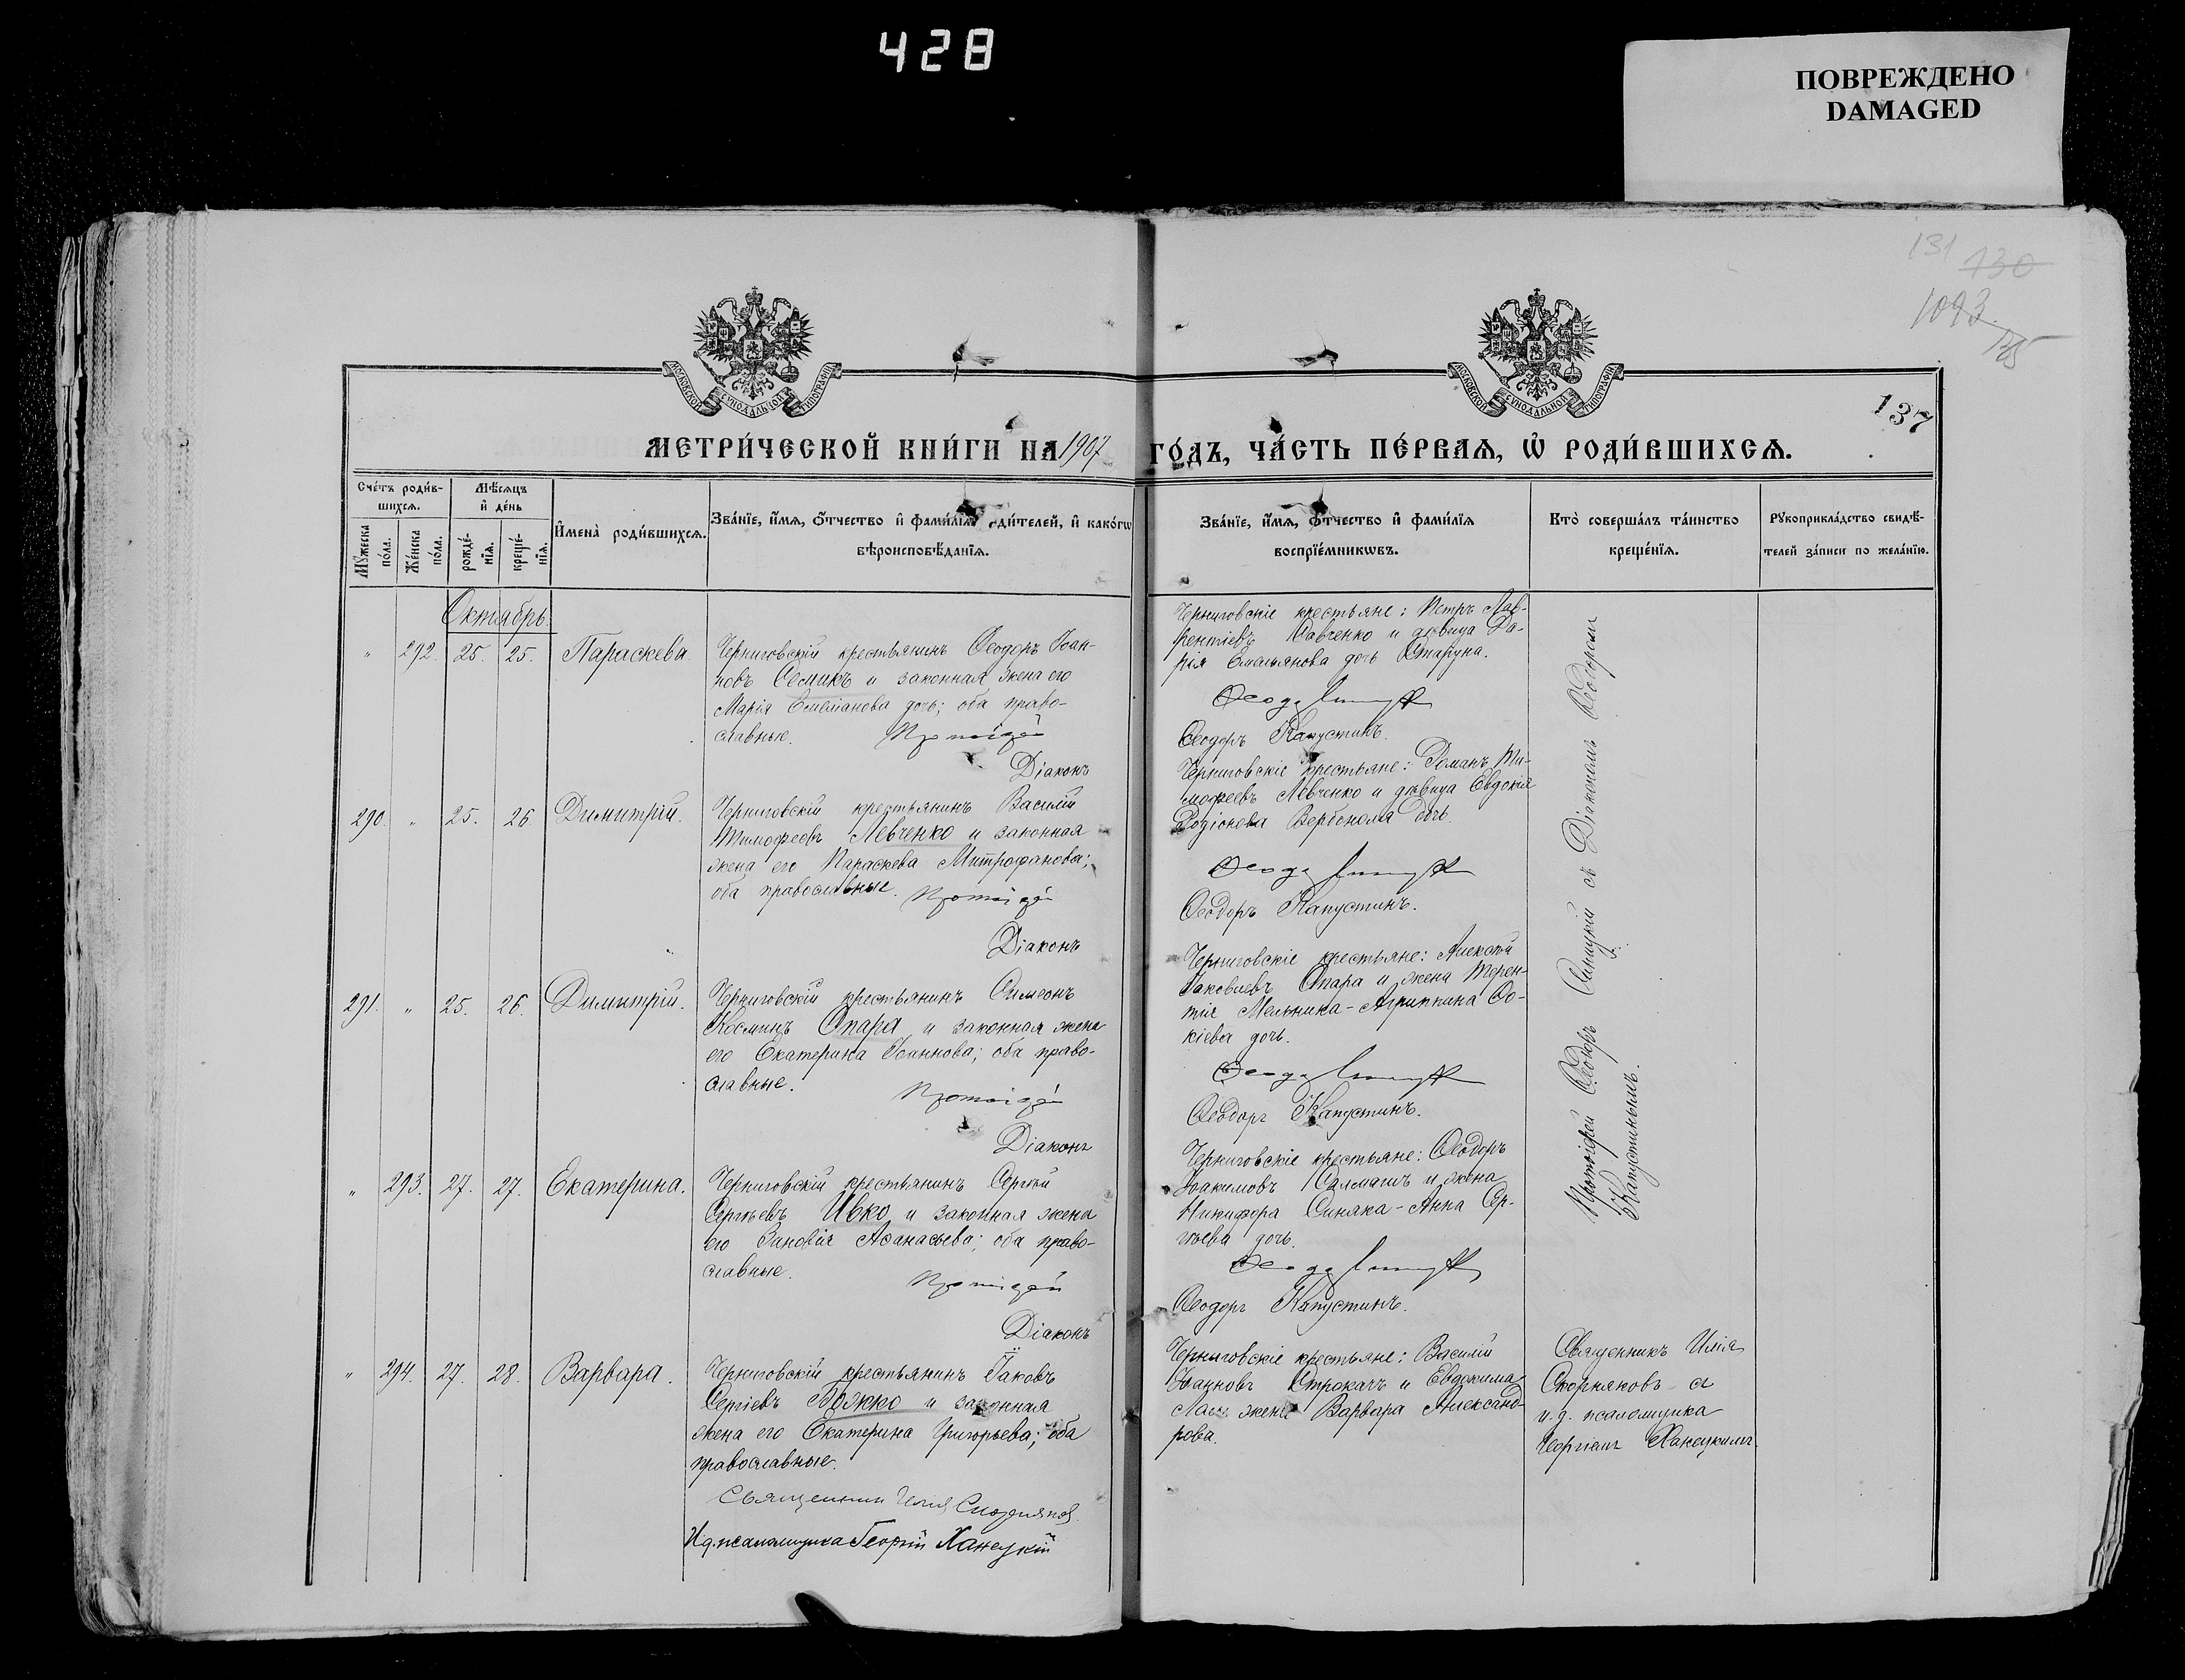 428
ПОВРЕЖДЕНО
DAMAGED
131 130
1093
137
МОСКОВСКОЙ СѴНОДАЛЬНОЙ ТИПОГРАФІИ
МОСКОВСКОЙ СѴНОДАЛЬНОЙ ТИПОГРАФІИ
МЕТРИ́ЧЕСКОЙ КНИ́ГИ НА 1907 ГО́ДЪ, ЧА́СТЬ ПЕ́РВАЯ, Ѡ РОДИ́ВШИХСЯ.
Сче́тъ роди́в-
шихся.
Мꙋ́жеска
по́ла.
Же́нска
по́ла.
Мѣ́сяцъ
и҆ де́нь
рожде́-
нїя.
креще́-
нїя.
И҆мена̀ роди́вшихся.
Зва́нїе, и҆́мя, ѻ҆́тчество и҆ фами́лїя роди́телей, и҆ како́гѡ
вѣроисповѣ́данїя.
Зва́нїе, и҆́мя, ѻ҆́тчество и҆ фами́лїя
воспрїе́мникѡвъ.
Кто̀ соверша́лъ та́инство
креще́нїя.
Рꙋкоприкла́дство свидѣ́-
телей за́писи по жела́нїю.
Октябрь.
" 292. 25. 25. Параскева
Черниговскій крестьянинъ Ѳеодоръ Іоан-
новъ Семикъ и законная жена его
Марія Емеліанова дочь; оба право-
славные. Протоіерей
Діаконъ
Черниговскіе крестьяне: Петръ Лав-
рентіевъ Савченко и дѣвица Да-
рія Емельянова дочь
Ѳеодоръ
Ѳеодоръ Капустинъ.
290. " 25. 26 Димитрій.
Черниговскій крестьянинъ Василій
Тимоѳеевъ Левченко и законная
жена его Параскева Митрофанова;
оба православные. Протоіерей
Діаконъ
Черниговскіе крестьяне: Романъ Ти-
моѳеевъ Левченко и дѣвица Евдокія
Родіонова дочь.
Ѳеодоръ
Ѳеодоръ Капустинъ.
291. " 25. 26. Димитрій.
Черниговскій крестьянинъ Симеонъ
Косминъ Опара и законная жена
его Екатерина Іоаннова; оба право-
славные.
Протоіерей
Діаконъ
Черниговскіе крестьяне: Алексѣй
Іаковлевъ Опара и жена Терен-
тія Мельника - Агриппина Фо-
кіева дочь.
Ѳеодоръ
Ѳеодоръ Капустинъ.
" 293. 27. 27. Екатерина.
Черниговскій крестьянинъ Сергѣй
Сергѣевъ Ивко и законная жена
его Зиновія Аѳанасьева; оба право-
славные.
Протоіерей
Діаконъ
Черниговскіе крестьяне: Ѳеодоръ
Іоакимовъ и жена
Никифора Синяка - Анна Сер-
гѣева дочь.
Ѳеодоръ
Ѳеодоръ Капустинъ.
Протоіерей Ѳеодоръ съ Діакономъ Ѳеодоромъ
Капустинымъ.
" 294. 27. 28. Варвара.
Черниговскій крестьянинъ Іаковъ
Сергіевъ Божко и законная
жена его Екатерина Григорьева; оба
православные.
Священникъ Илія Скорняковъ.
И.д. псаломщика Георгій Ханецкій
Черниговскіе крестьяне: Василій
Іоанновъ Строкачъ и Евдокима
жена Варвара Александ-
рова.
Священникъ Илія
Скорняковъ съ
и.д. псаломщика
Георгіемъ Ханецкимъ.